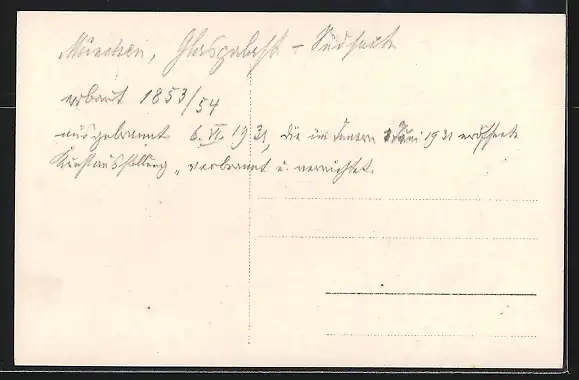 München, Glaspalast - Südseite
erbaut 1853/54
ausgebrannt 6. VI. 1931, die im Innern Juni 1931 eröffnete
Kunstausstellung verbrannt u. vernichtet.